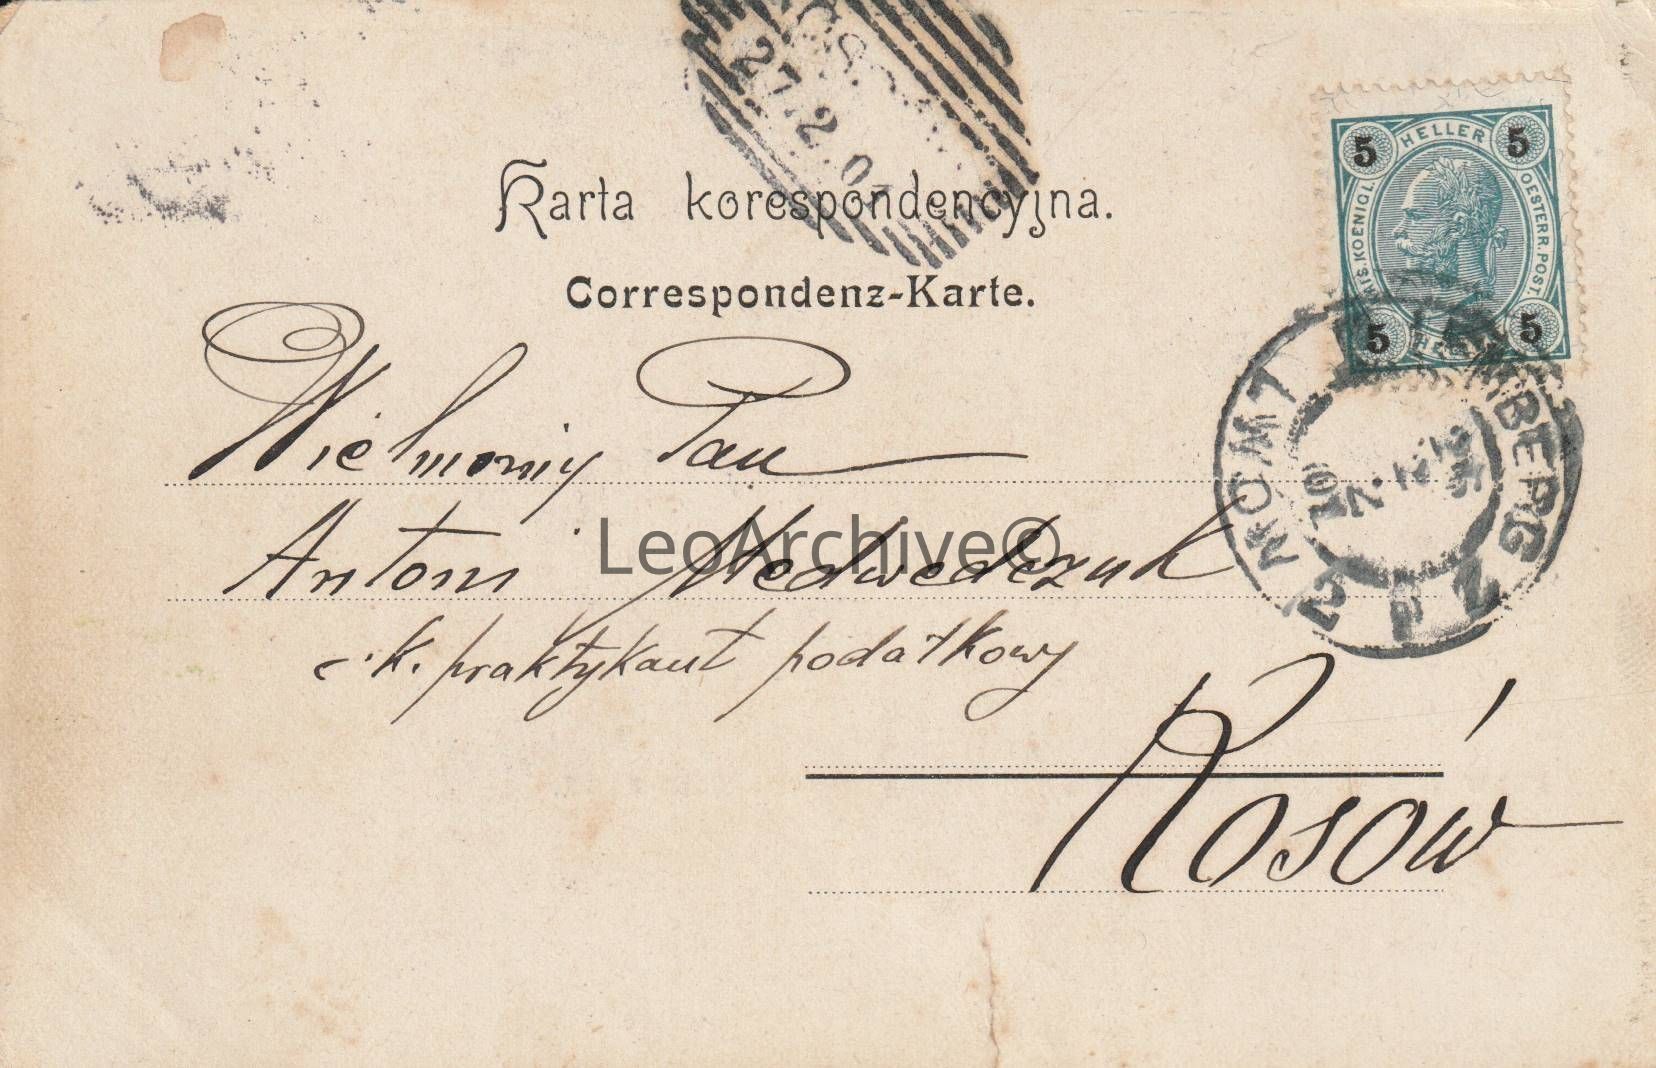 27.2.0
Karta korespondencyjna.
Correspondenz-Karte.
HELLER
5 5
KAIS. KOENIGL. OESTERR. POST.
5 5
Wielmożny Pan
Antoni Medwedczuk
c. k. praktykant podatkowy
Kosów
LEMBERG 2
LeoArchive©